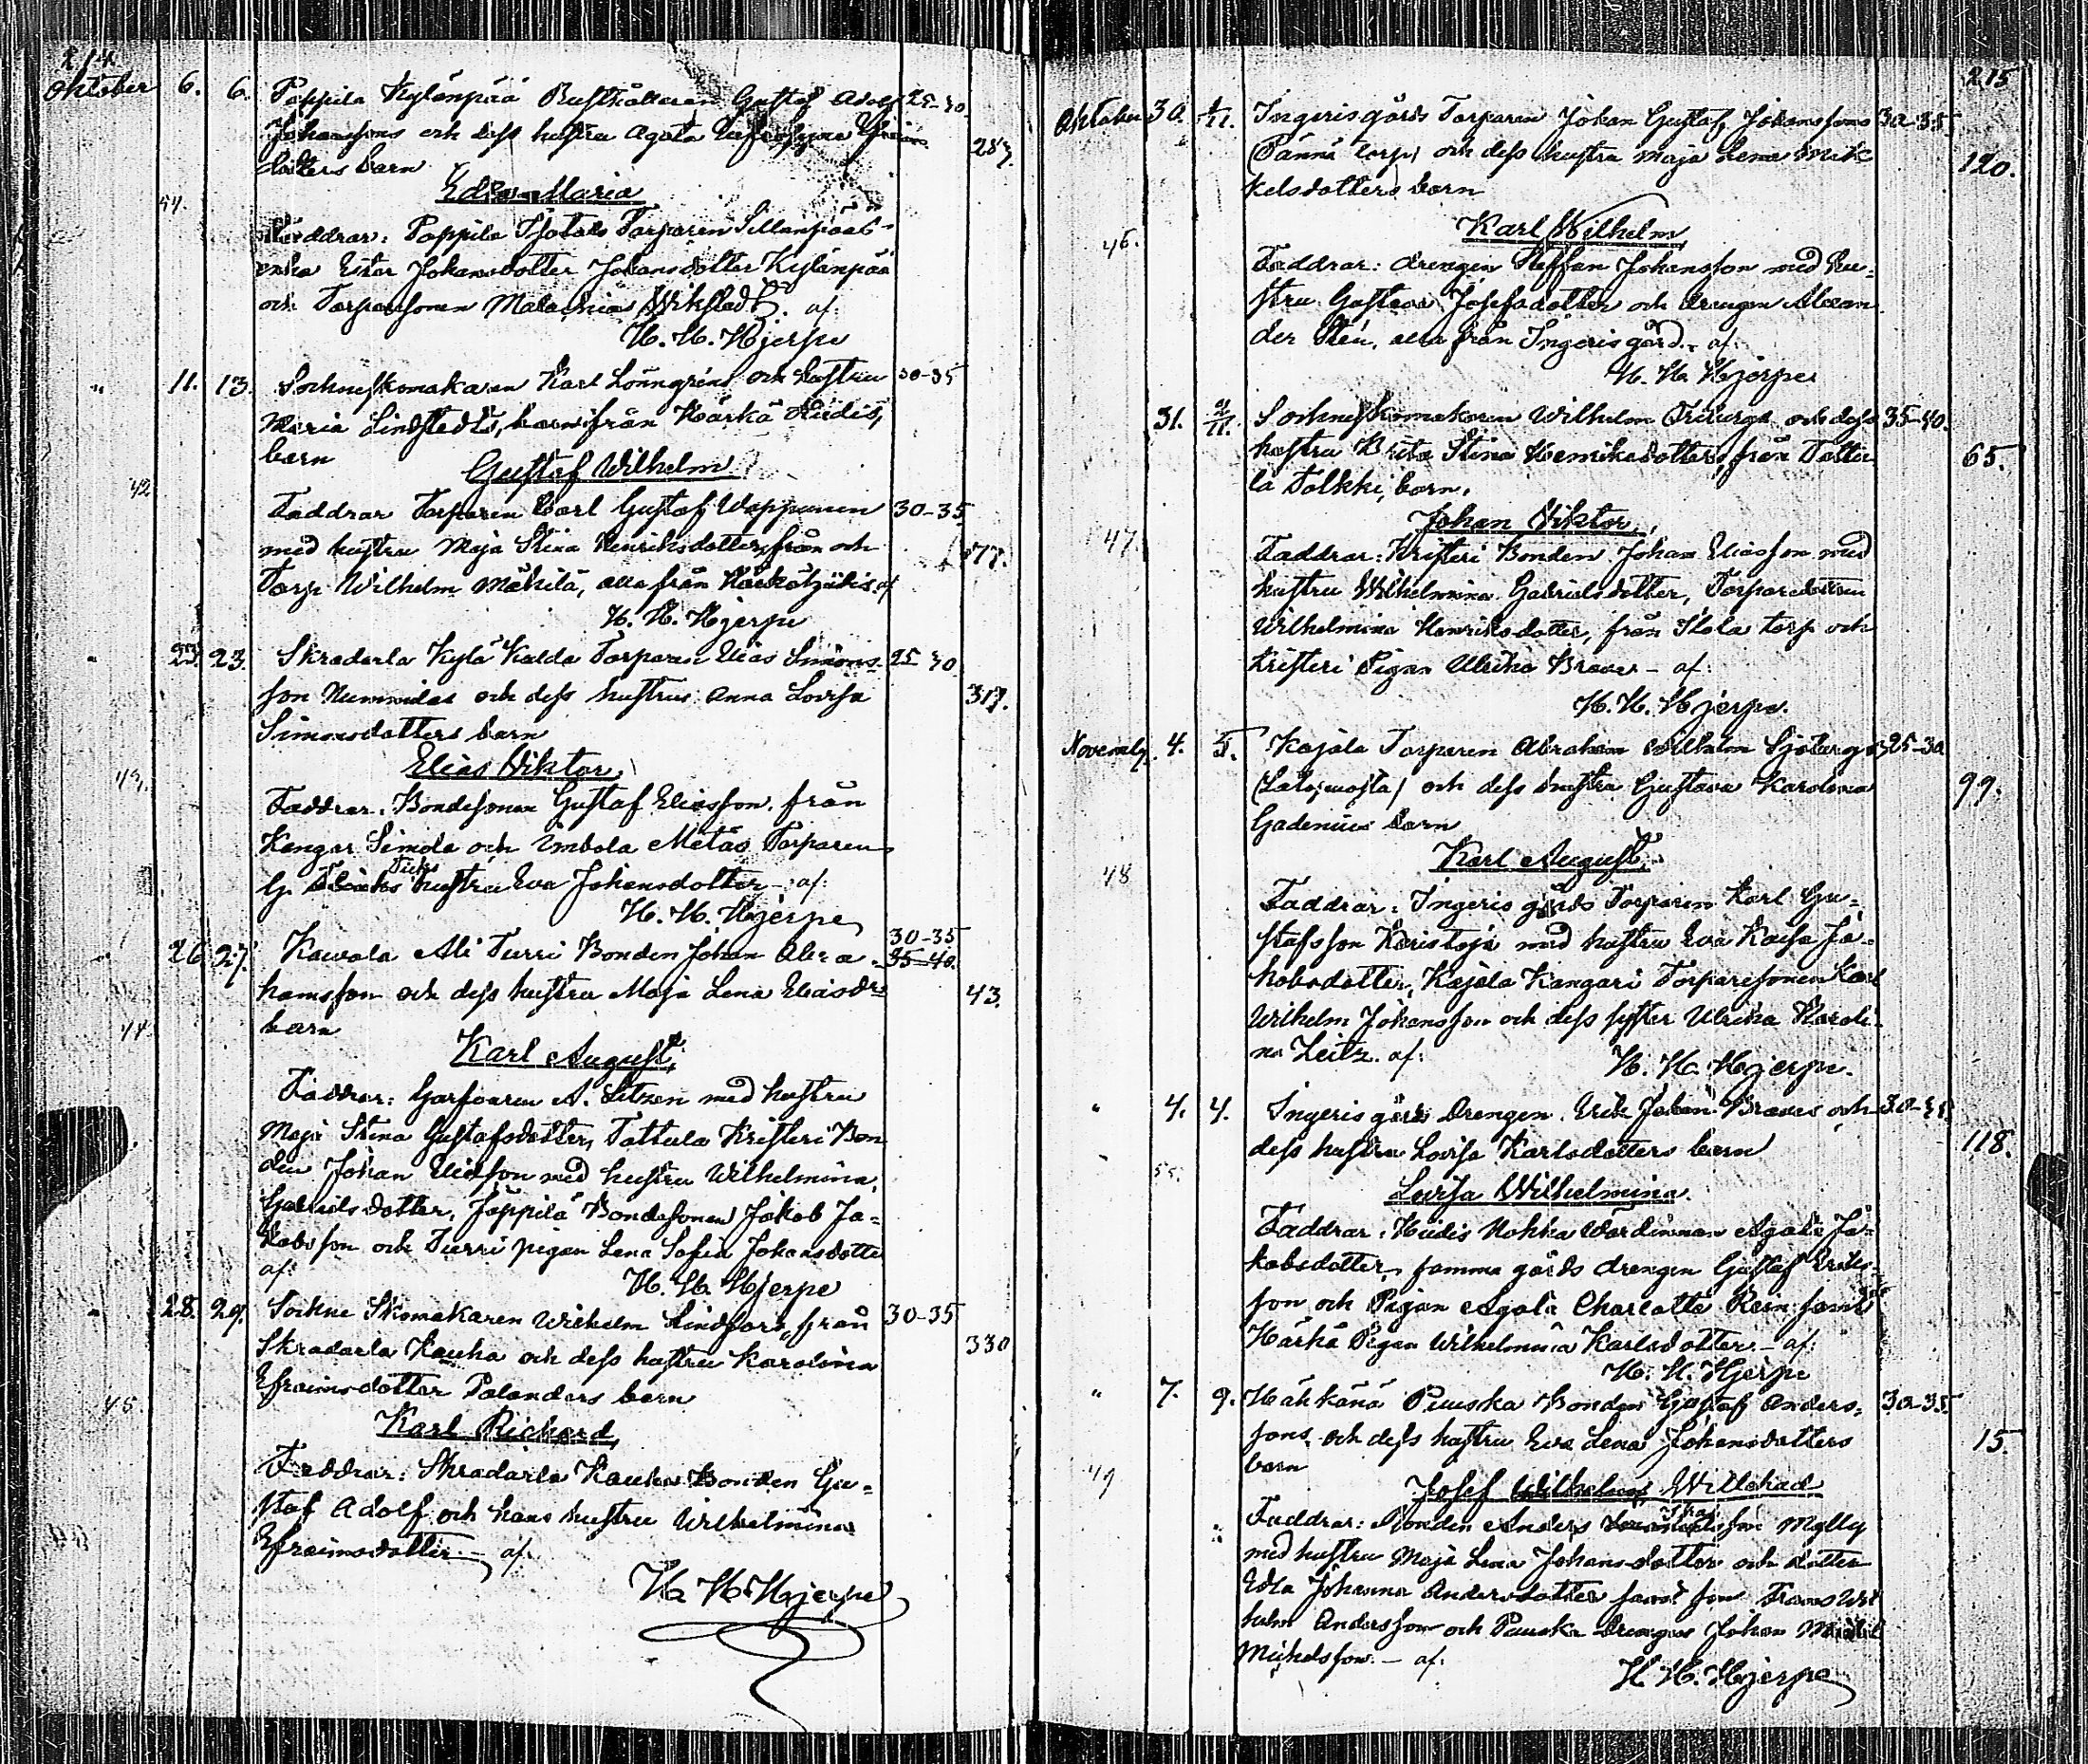 214.
Oktober 6. 6. Poppila Kylänpää Rusthållaren Gustaf Adolf 25-30.
Johanssons och dess hustru Agata Eufrosyna Efraims 287.
dotters barn
Edla Maria
41.
Faddrar: Poppila Sjötals Torparen Sillanpääs
enka Ester Johansdotter Johansdotter Kylänpää
och Torparsonen Malachia Wikstedt. af:
H. H. Hjerpe
" 11. 13. Sockneskomakaren Karl Lönngrens och hustru 30-35
Maria Lindstedts, barn från Härkä Hiidis,
barn
Gustaf Wilhelm
42
Faddrar Torparen Carl Gustaf Wapparen 30-35
med hustru Maja Stina Henriksdotter, från och 177.
Torp. Wilhelm Mäkilä, alla från Härkätziikis. af
H. H. Hjerpe
" 23. 23. Skradarla Kylä Kalda Torparen Elias Simons- 25-30
son Nummilas och dess hustrus Anna Lovisa 317.
Simonsdotters barn
Elias Viktor,
43.
Faddrar: Bondesonen Gustaf Eliasson från
Kangar Simola och Imbola Metäs Torparen
G. Ticks hustru Eva Johansdotter - af:
H. H. Hjerpe
" 26. 27. Kawola Ali Turri Bonden Johan Abra- 30-35 35-40.
hamsson och dess hustru Maja Lena Eliasdrs 43.
barn
44.
Karl August,
Faddrar: Garfvaren A. Litzen med hustru
Maja Stina Gustafsdotter, Tattula Kristeri Bon
den Johan Eliasson med hustru Wilhelmina
Gabrielsdotter, Jäppilä Bondesonen Jakob Ja-
kobsson och Turri pigan Lena Sofia Johansdotter
af: H. H. Hjerpe
" 28. 29. Sockne Skomakaren Wilhelm Lindfors, från 30-35
Skradarla Kauha och dess hustru Karolina 330
Efraimsdotter Palanders barn
45.
Karl Richard,
Faddrar: Skradarla Kauha Bonden Gu-
staf Adolf och hans hustru Wilhelmina
Efraimsdotter - af:
H. H. Hjerpe
215
Oktober 30. 1/11. Ingerisgårds Torparen Johan Gustaf Johanssons 30-35
(Pännä torp) och dess hustru Maja Lena Mik 120.
kelsdotters barn
Karl Wilhelm
46.
Faddrar: drengen Steffan Johansson med hu-
stru Gustava Josefsdotter och drengen Alexan
der Stén, alla från Ingerisgård. - af:
H. H. Hjerpe
31. 2/11. Sockneskomakaren Wilhelm Fribergs och dess 35-40.
hustru Brita Stina Henriksdotters, från Tattu 65.
la Tolkki, barn.
Johan Viktor,
47.
Faddrar: Kristeri Bonden Johan Eliasson med
hustru Wilhelmina Gabrielsdotter, Torparedottren
Wilhelmina Henriksdotter, från Stola torp och
Kristeri Pigan Ulrika Braxer - af:
H. H. Hjerpe.
November 4. 5. Kojola Torparen Abraham Wilhelm Sjöbergs 25-30
(Latojmosta) och dess hustru Gustava Karolina 99.
Gadenius barn
Karl August,
48
Faddrar: Ingeris gårds Torparen Karl Gu-
stafsson Karistoja med hustru Eva Kaisa Ja-
kobsdotter, Kojola Kangari Torparesonen Karl
Wilhelm Johansson och dess syster Ulrika Karoli-
na Zeitz. af: H. H. Hjerpe.
" 4. 4. Ingeris gårds Drengen Erik Johan Braxes och 30-35
dess hustru Lovisa Karlsdotters barn 118.
55.
Lovisa Wilhelmina.
Faddrar: Hiidis Nokka Värdinnan Agata Ja-
kobsdotter, samma gårds drengen Gustaf Eriks-
son och Pigan Agata Charlotta Rein samt
Härkä Pigan Wilhelmina Karlsdotter. - af:
H. H. Hjerpe
" 7. 9. Hähkänä Puuska Bonden Gustaf Anders- 30-35.
sons och dess hustru Eva Lena Johansdotters 15.
barn
Josef Wilhelm Willehad
49
Faddrar: Bonden Anders son Mälly
med hustru Maja Lena Johansdotter och dotter
Edla Johanna Andersdotter samt son Frans Wil
helm Andersson och Puuska Drengen Johan Mikael
Michelsson. - af:
H. H. Hjerpe